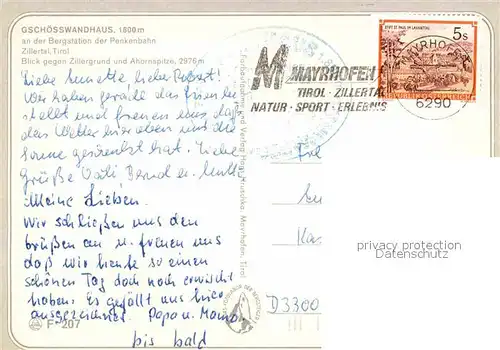 GSCHÖSSWANDHAUS, 1.800 m
an der Bergstation der Penkenbahn
Zillertal, Tirol
Blick gegen Zillergrund und Ahornspitze, 2976 m
Liebe Annette, lieber Robert!
Wir haben gerade das
stellt und freuen uns, daß
das Wetter hier oben und die
Sonne Liebe
Grüße Vati Bernd u. Mutti
Meine Lieben.
Wir schließen uns den
Grüßen an u. freuen uns
daß wir heute so einen
schönen Tag doch noch erwischt
haben. Es gefällt uns hier
ausgezeichnet. Papa u. Mama
bis bald
F-207
M MAYRHOFEN
TIROL · ZILLERTAL
NATUR · SPORT · ERLEBNIS
STIFT ST. PAUL IM LAVANTTAL
5s
REPUBLIK ÖSTERREICH
MAYRHOFEN
6290
D3300
privacy protection
Datenschutz